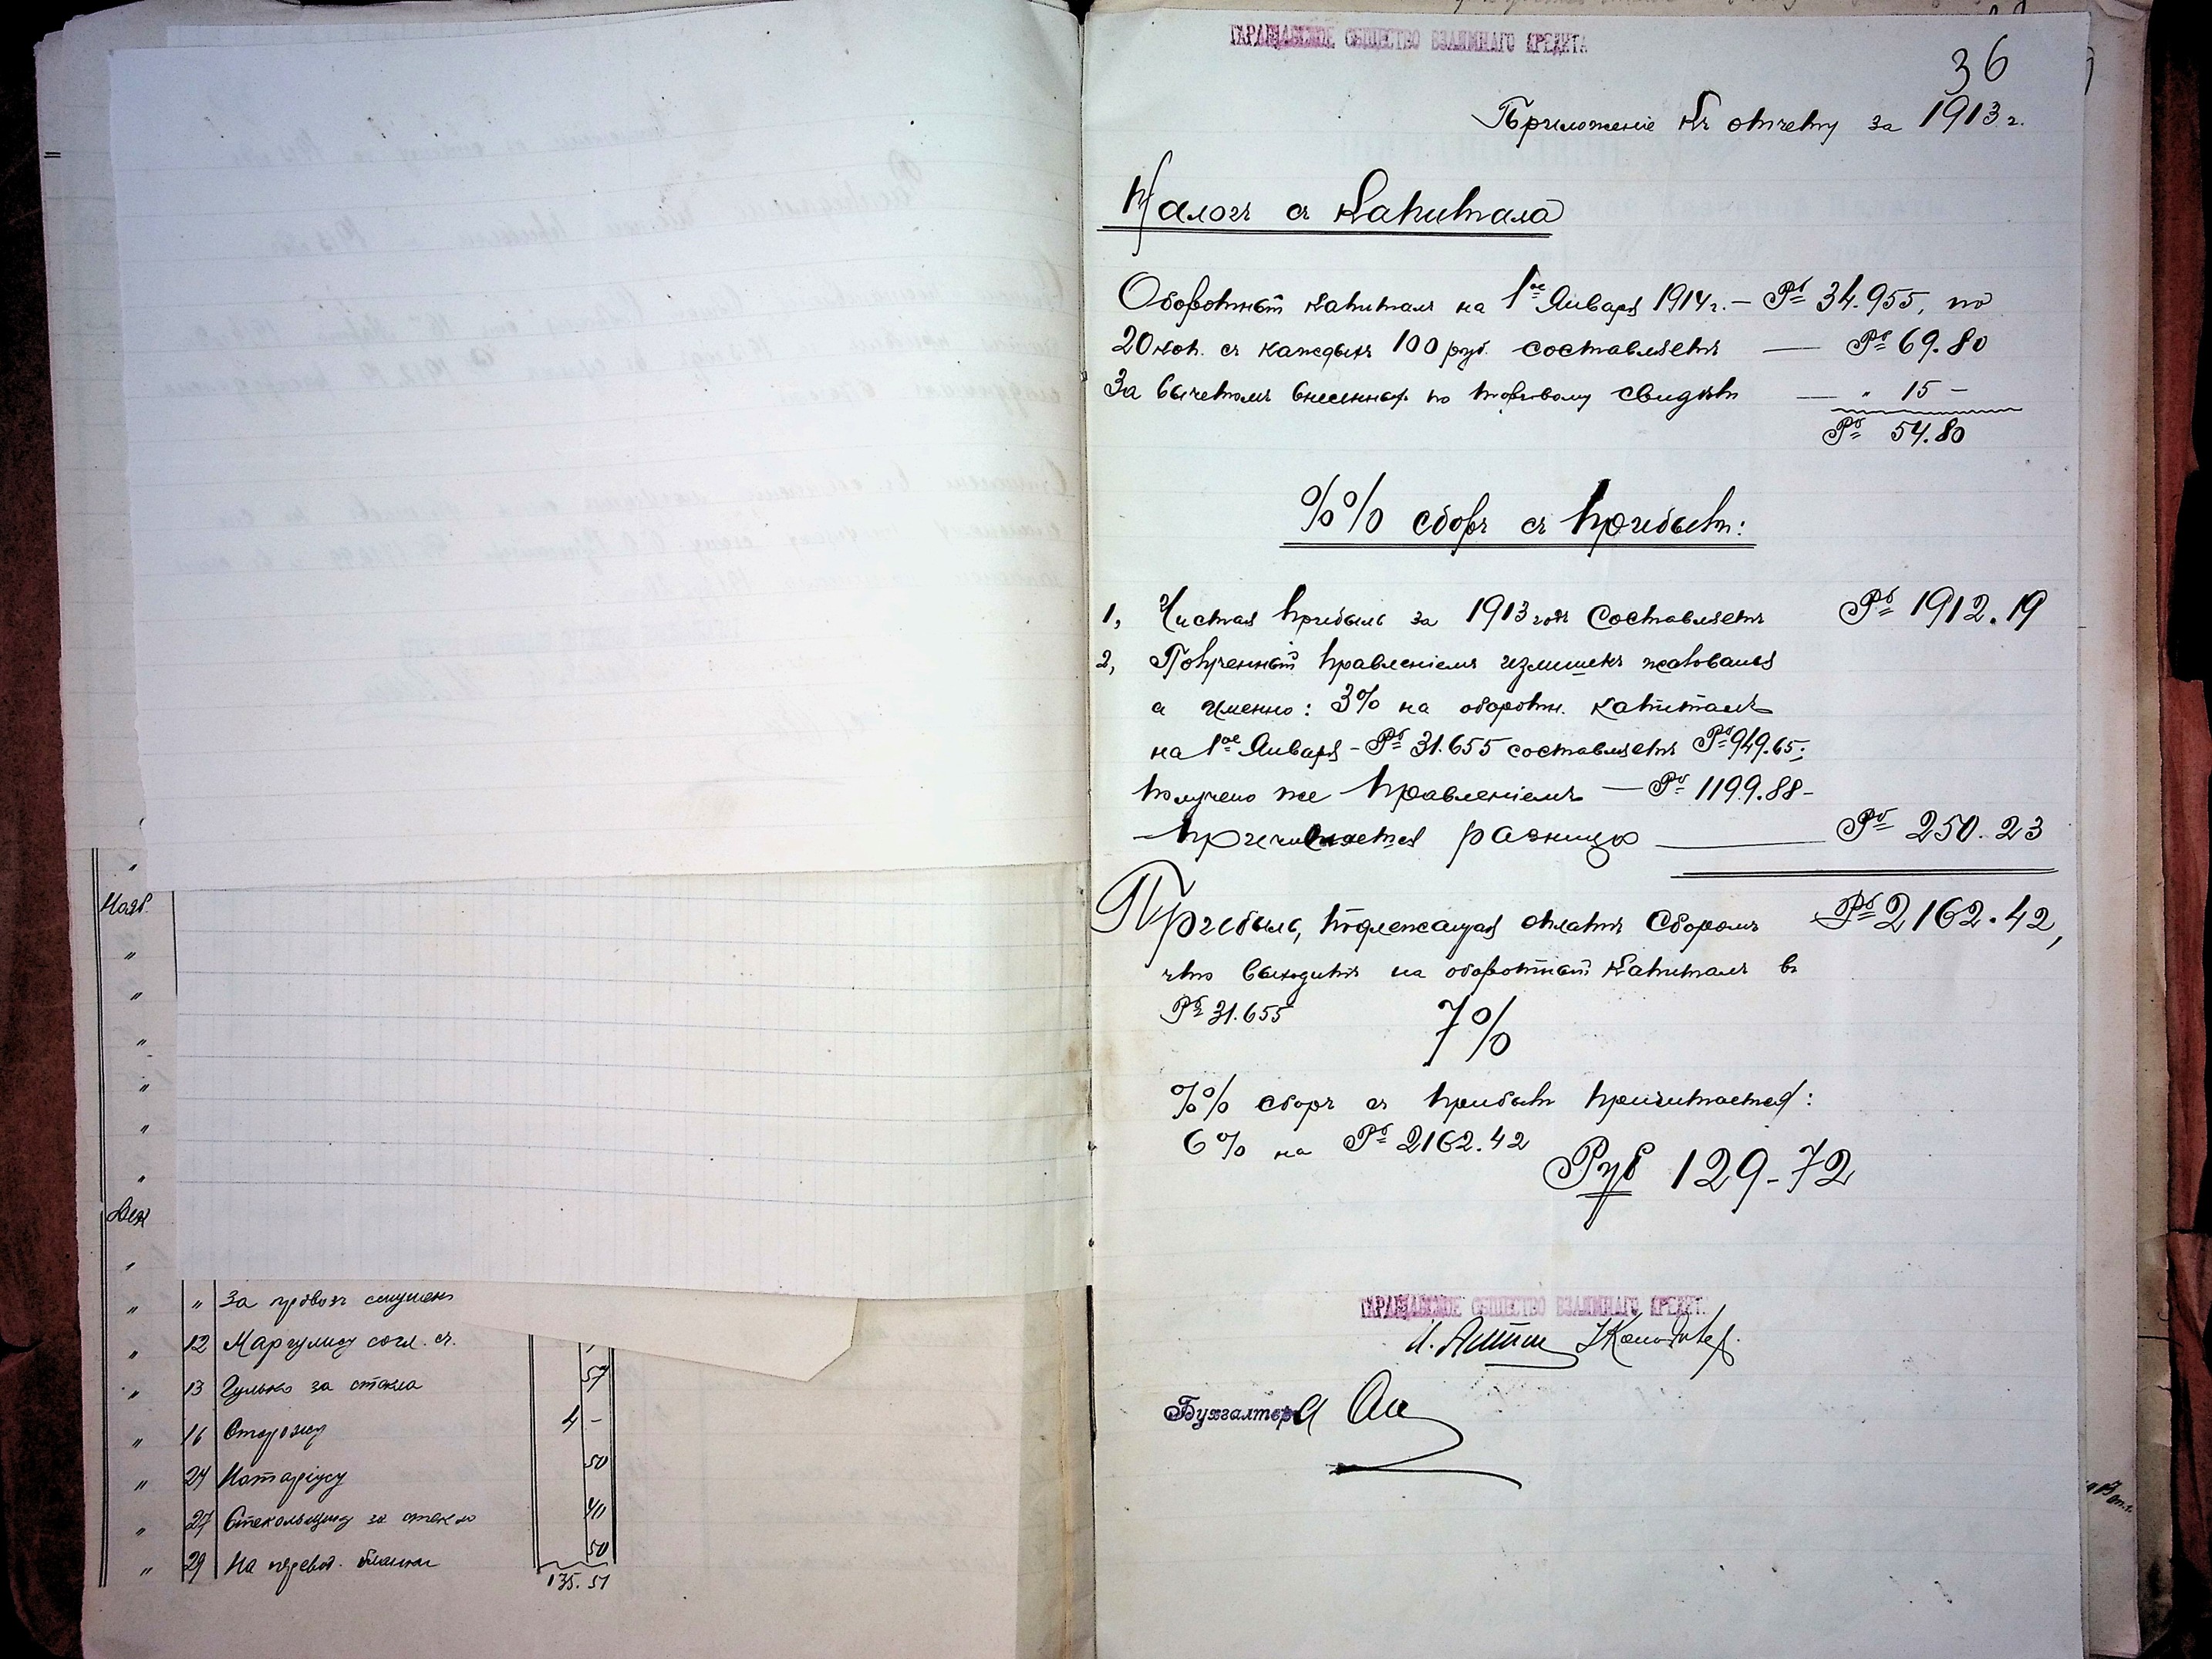 Нояб.
"
"
"
"
"
"
Дек
"
" " За провозъ
" 12 Маргулису согл. сч.
" 13 Гулько за стекла 57
" 16 Сторожу 4 -
" 24 Нотаріусу 50
" 27 Стекольщику за стекло 40
" 29 На перевод. бланки 50
135.51
ГАРАЩАВСКОЕ ОБЩЕСТВО ВЗАИМНАГО КРЕДИТА
36
Приложеніе къ отчету за 1913 г.
Налогъ съ капитала
Оборотный капиталъ на 1ое Января 1914 г. — Рб 34.955, по
20 коп. съ каждыхъ 100 руб. составляетъ — Рб 69.80
За вычетомъ внесенныхъ по торговому свидѣт — " 15 -
Рб 54.80
%% сборъ съ прибыли:
1, Чистая прибыль за 1913 годъ составляетъ Рб 1912.19
2, Полученный правленіемъ излишекъ жалованья
а именно: 3% на оборотн. капиталъ
на 1ое Января - Рб 31.655 составляетъ Рб 949.65;
получено же правленіемъ — Рб 1199.88 -
- причитается разница — Рб 250.23
Прибыль, подлежащая оплатѣ сборомъ Рб 2162.42,
что выходитъ на оборотный капиталъ въ
Рб 31.655 7%
%% сборъ съ прибыли причитается:
6% на Рб 2162.42 Руб 129-72
ГАРАЩАВСКОЕ ОБЩЕСТВО ВЗАИМНАГО КРЕДИТ
Бухгалтеръ